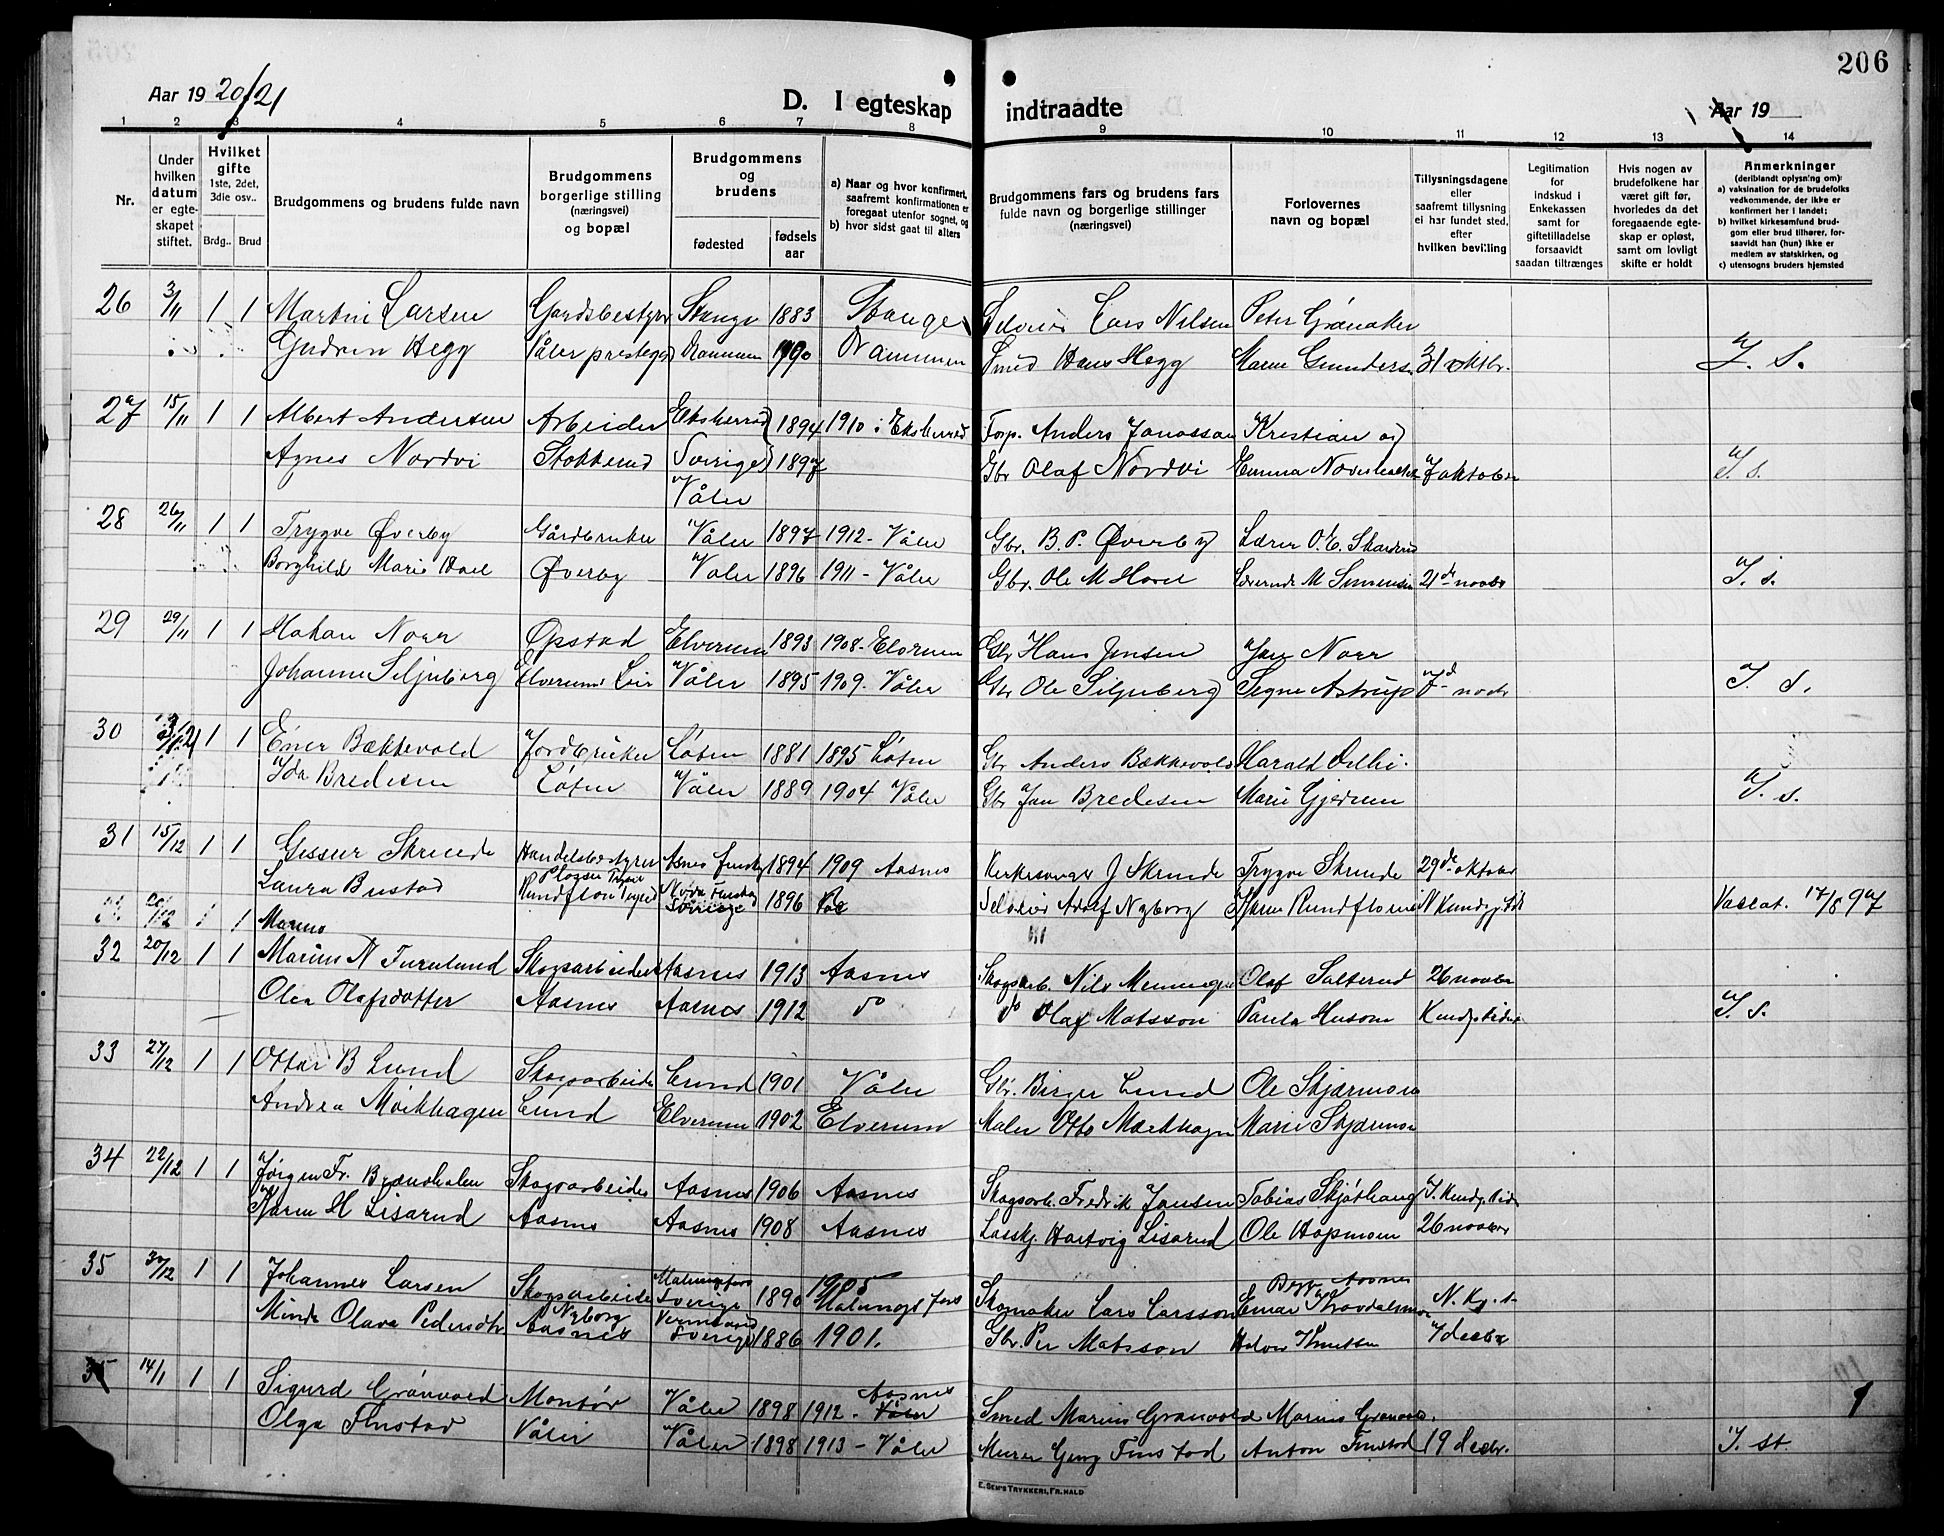 206
Aar 19 20/21
D. I egteskap indtraadte
Aar 19
1 2 3 4 5 6 7 8 9 10 11 12 13 14
Nr.
Under hvilken datum er egteskapet stiftet.
Hvilket gifte
1ste, 2det, 3die osv..
Brdg.. Brud
Brudgommens og brudens fulde navn
Brudgommens borgerlige stilling (næringsvei) og bopæl
Brudgommens og brudens
fødested
fødsels aar
a) Naar og hvor konfirmert, saafremt konfirmationen er foregaat utenfor sognet, og
b) hvor sidst gaat til alters
Brudgommens fars og brudens fars fulde navn og borgerlige stillinger (næringsvei)
Forlovernes navn og bopæl
Tillysningsdagene eller saafremt tillysning ei har fundet sted, efter hvilken bevilling
Legitimation for indskud i Enkekassen samt for giftetilladelse forsaavidt saadan tiltrænges
Hvis nogen av brudefolkene har været gift før, hvorledes da det foregaaende egteskap er opløst, samt om lovligt skifte er holdt
Anmerkninger
(deriblandt oplysn'ng om):
a) vaksination for de brudefolks vedkommende, der ikke er konfirmert her i landet;
b) hvilket kirkesamfund brudgom eller brud tilhører, forsaavidt han (hun) ikke er medlem av statskirken, og
c) utensogns bruders hjemsted
26 3/11 1 1 Martin Larsen Gardsbestyrer Stange 1883 Stange Lars Nilsen Peter Grønaker
Gudrun Hegg Våler prestegd Drammen 1890 Drammen Smed Hans Hegg Marie Gunders. 31 oktbr. I. S.
27 15/11 1 1 Albert Andersen Arbeider Eksherrad 1894 1910 i Eksherrad Torp. Anders Jonasson Kristian og
Agnes Nordvi Stokkerud Sverige 1897 Gbr Olaf Nordvi Emma 7 oktober I. s.
Våler
28 26/11 1 1 Trygve Øverby Gårdbruker Våler 1897 1912 - Våler Gbr. B. P. Øverby Lærer O. E. Skarderud
Borghild Marie Hoel Øverby Våler 1896 1911 - Våler Gbr. Ole M Hovel Lærerinde M Simensen 21de novbr I. s.
29 29/11 1 1 Håkan Norr Opstad Elverum 1893 1908 - Elverum Gbr Hans Jensen Jon Norr
Johanne Siljuberg Elverum Leir Våler 1895 1909. Våler Gbr Ole Siljuberg Signe Astrup 7d novbr I. s.
30 1 1 Einer Bækkevold Jordbruker Løten 1881 1895 Løten Gbr Anders Bækkevold Harald
Ida Bredesen Løten Våler 1889 1904 Våler Gbr Jan Bredesen Marie Gjerum I. s.
31 15/12 1 1 Gissur Skrinde Handelsbestyrer Aasnes Finskog 1894 1909 Aasnes Kirkesanger J Skrinde Trygve Skrinde 29de oktober
Laura Bustad Rundfloen Trysil Sverige 1896 Adolf Nyborg Karen Rundfloen Vaccat. 17/8 97
20/12 1 1 Marius
32 20/12 1 1 Marius N Furulund Skogsarbeider Aasnes 1913 Aasnes Skogsarb. Nils Olaf Salterud 26 novbr
Olea Olafsdotter Aasnes Aasnes 1912 do do Olaf Matsson Paula Husom I. s.
33 27/12 1 1 Ottar B Lund Skogsarbeider Lund 1901 Våler Gbr. Birger Lund Ole Skjærmoen
Andrea Mørkhagen Lund Elverum 1902 Elverum Maler Otto Mørkhagen Marie Skjærmoen
34 22/12 1 1 Jørgen Fr. Brændhølen Skogsarbeider Aasnes 1906 Aasnes Skogsarb. Fredrik Jansen Tobias Skjøthaug
Karen H Lisarud Aasnes Aasnes 1908 Aasnes Hartvig Lisarud Ole Hapmoen 26 novbr
35 30/12 1 1 Johannes Larsen Skogsarbeider Malungsfors Sverige 1890 1905 Malungsfors Skomaker Lars Larsson Einar N. Kg. t.
Minda Olava Pedersdtr Nyborg Aasnes Sverige 1886 1901. Gbr. Per Matsson Halvor Knutsen 7 decbr
35 14/1 1 1 Sigurd Grønvold Montør Våler 1898 1912 - Våler Aasnes Smed Marius Grønvold Marius Grønvold.
Olga Finstad Våler Våler 1898 1913 - Våler Murer Georg Finstad Anton Finstad 19 decbr. I. st.
E. SEM'S TRYKKERI, FR.HALD